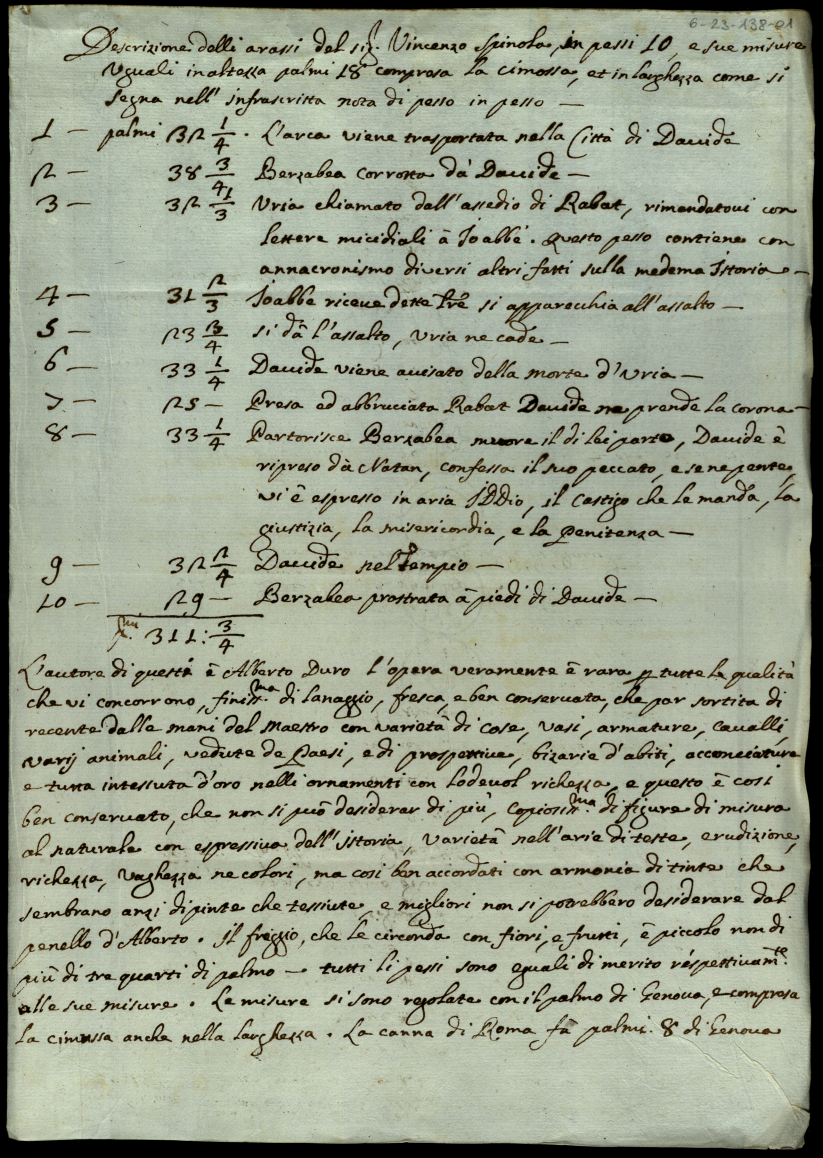 6-23-138-01
Descrizione delli arassi del sig.r Vincenzo Spinola, in pessi 10, e sue misure
Uguali in altezza palmi 18 compresa la cimossa, et in larghezza come si
segna nell' infrascritta nota di pesso in pesso —
1 — palmi 32 1/4 . L'arca viene trasportata nella Città di Dauide
2 — 38 3/4 Berzabea corrotta dà Dauide —
3 — 32 1/3 Uria chiamato dall'assedio di Rabat, rimandatoui con
lettere micidiali à Joabbe . Questo pesso contiene con
annacronismo diuersi altri fatti sulla medema Istoria —
4 — 31 2/3 Joabbe riceue dette lre si apparecchia all'assalto —
5 — 23 3/4 si dà l'assalto, Uria ne cade —
6 — 33 1/4 Dauide viene auisato della morte d'Uria —
7 — 25 — Presa ed abbruciata Rabat Dauide ne prende la corona —
8 — 33 1/4 Partorisce Berzabea muore il di lei parto, Dauide è
ripreso dà Natan, confessa il suo peccato, e se ne pente,
vi è espresso in aria IDDio, il Castigo che le manda, la
giustizia, la misericordia, e la Penitenza —
9 — 32 2/4 Dauide nel Tempio —
10 — 29 — Berzabea prostrata à piedi di Dauide —
p.mi 311 : 3/4
L'autore di questi è Alberto Duro l'opera veramente è rara p tutte le qualità
che vi concorrono, finiss.ma di lanaggio, fresca, e ben conseruata, che par sortita di
recente dalle mani del Maestro con varietà di cose, vasi, armature, Caualli,
varij animali, vedute de Paesi, e di prospettiue, bizarie d'abiti, acconciature
e tutta intessuta d'oro nelli ornamenti con lodeuol richezza, e questo è così
ben conseruato, che non si può desiderar di più, copiosiss.ma di figure di misura
al naturale con espressiua dell'istoria, varietà nell'arie di teste, erudizione,
richezza, vaghezza ne colori, ma cosi ben accordati con armonia di tinte che
sembrano anzi dipinte che tessiute, e migliori non si potrebbero desiderare dal
penello d'Alberto . Il freggio, che le circonda con fiori, e frutti, è piccolo non di
più di tre quarti di palmo — tutti li pessi sono eguali di merito respettiuam.te
alle sue misure . Le misure si sono regolate con il palmo di Genoua, e compresa
la cimossa anche nella larghezza . La canna di Roma fà palmi 8 di Genoua